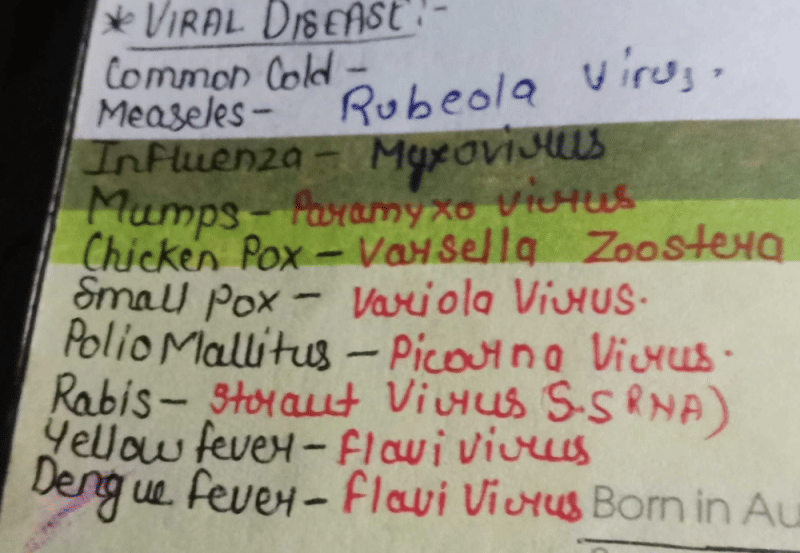 * VIRAL DISEASE :-
Common Cold -
Measeles - Rubeola Virus.
Influenza - Myxovirus
Mumps - Paramyxo Virus
Chicken Pox - Varsella Zoostera
Small Pox - Variola Virus.
Polio Mallitus - Picorna Virus.
Rabis - Straut Virus (S.S RNA)
Yellow fever - Flavi Virus
Dengue fever - Flavi Virus Born in Au